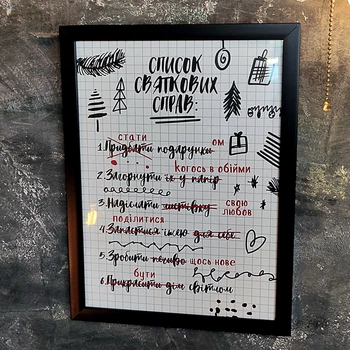 СПИСОК
СВЯТКОВИХ
СПРАВ:
стати
1. Придбати подарунки ом
Когось в обійми
2. Загорнути їх у папір
3. Надіслати листівку свою любов
поділитися
4. Запастися їжею для себе
5. Зробити печиво щось нове
бути
6. Прикрасити дім світлом